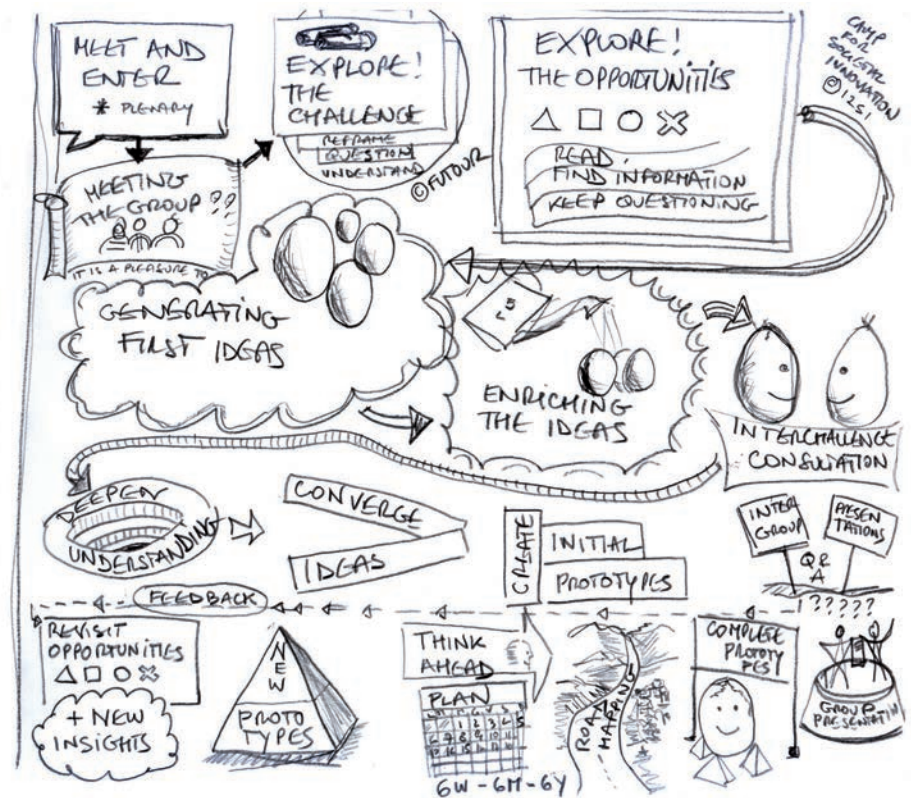 MEET AND
ENTER
* PLENARY
EXPLORE!
THE
CHALLENGE
REFRAME
QUESTION
UNDERSTAND
© FUTOUR
EXPLORE!
THE OPPORTUNITIES
READ
FIND INFORMATION
KEEP QUESTIONING
CAMP
FOR
SOCIETAL
INNOVATION
MEETING
THE GROUP ??
IT IS A PLEASURE TO
GENERATING
FIRST IDEAS
ENRICHING
THE IDEAS
INTERCHALLENGE
CONSULTATION
DEEPEN
UNDERSTANDING
CONVERGE
IDEAS
CREATE
INITIAL
PROTOTYPES
INTER
GROUP
PRESEN
TATIONS
Q &
A
FEEDBACK
REVISIT
OPPORTUNITIES
+ NEW
INSIGHTS
NEW
PROTO
TYPES
THINK
AHEAD
PLAN
6W - 6M - 6Y
ROAD
MAPPING
COMPLETE
PROTOTY
PES
?????
GROUP
PRESENTATION